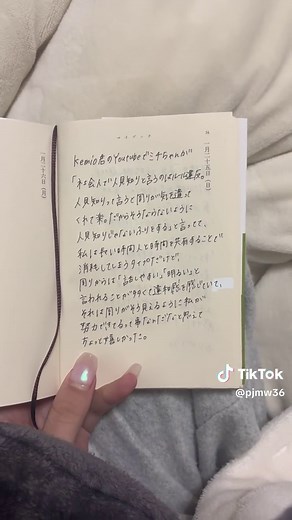 一月二十九日(日)
kemio君のYoutubeでミチちゃんが
「社会人が人見知りと言うのはルール違反。
人見知りって言うと周りが気を遣って
くれて楽。だからそうならないように
人見知りじゃないふりをする」と言ってて、
私は長い時間人と時間を共有することで
消耗してしまうタイプだけど、
周りからは「話しやすい」「明るい」と
言われることが多くて違和感を感じていて、
それは周りがそう見えるように私が
努力できてるって事なんだなと思えて
ちょっと嬉しかった。
一月二十六日
TikTok
@pjmw36